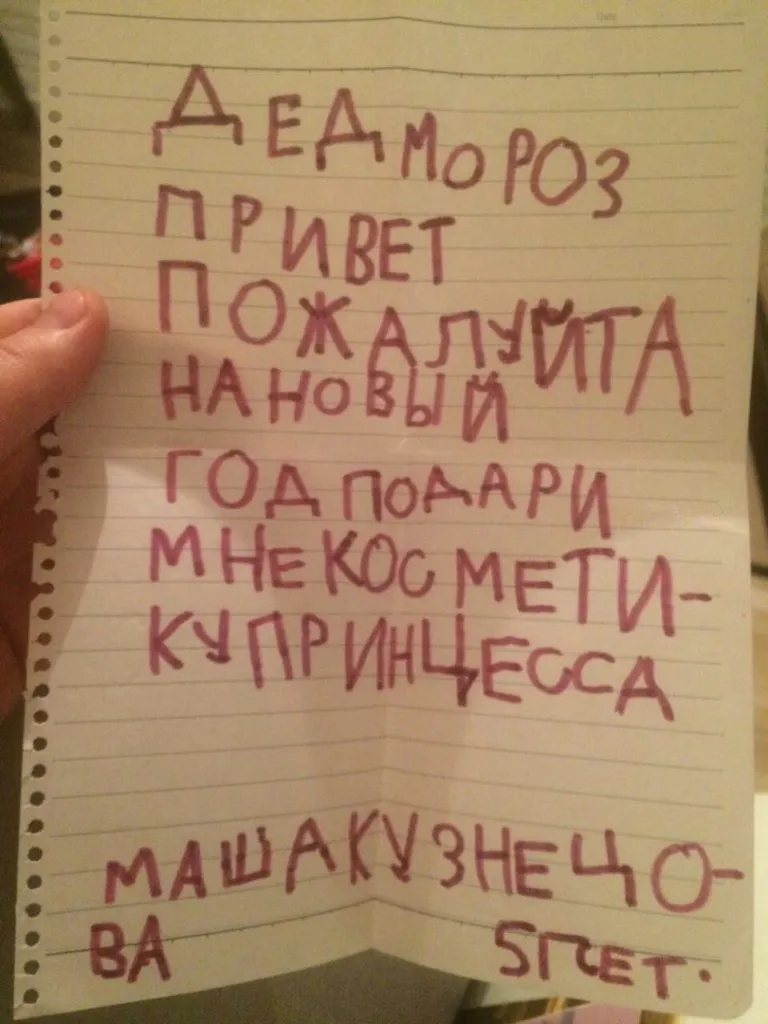 ДЕД МОРОЗ
ПРИВЕТ
ПОЖАЛУЙТА
НА НОВЫЙ
ГОД ПОДАРИ
МНЕ КОСМЕТИ-
КУ ПРИНЦЕССА
МАША КУЗНЕЦО-
ВА 5 ЛЕТ.